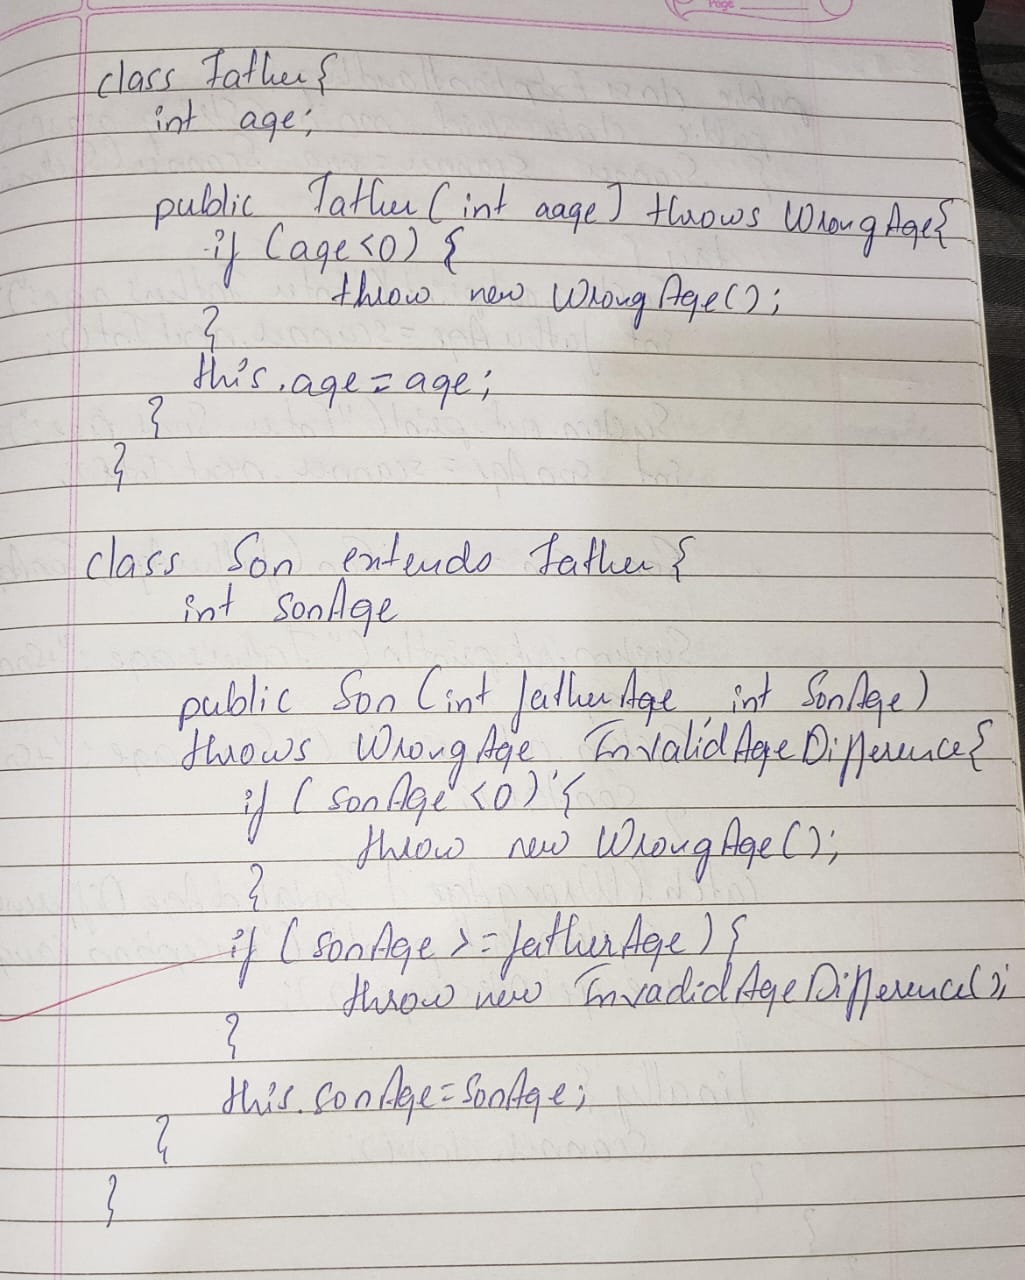 Page
class Father{
int age;
public Father(int aage) throws WrongAge{
if (age<0) {
throw new WrongAge();
}
this.age=age;
}
}
class Son extends Father{
int sonAge
public Son (int fatherAge int SonAge)
throws WrongAge InvalidAgeDifference{
if (sonAge<0) {
throw new WrongAge();
}
if (sonAge>=fatherAge) {
throw new InvadidAgeDifference();
}
this.sonAge=SonAge;
}
}